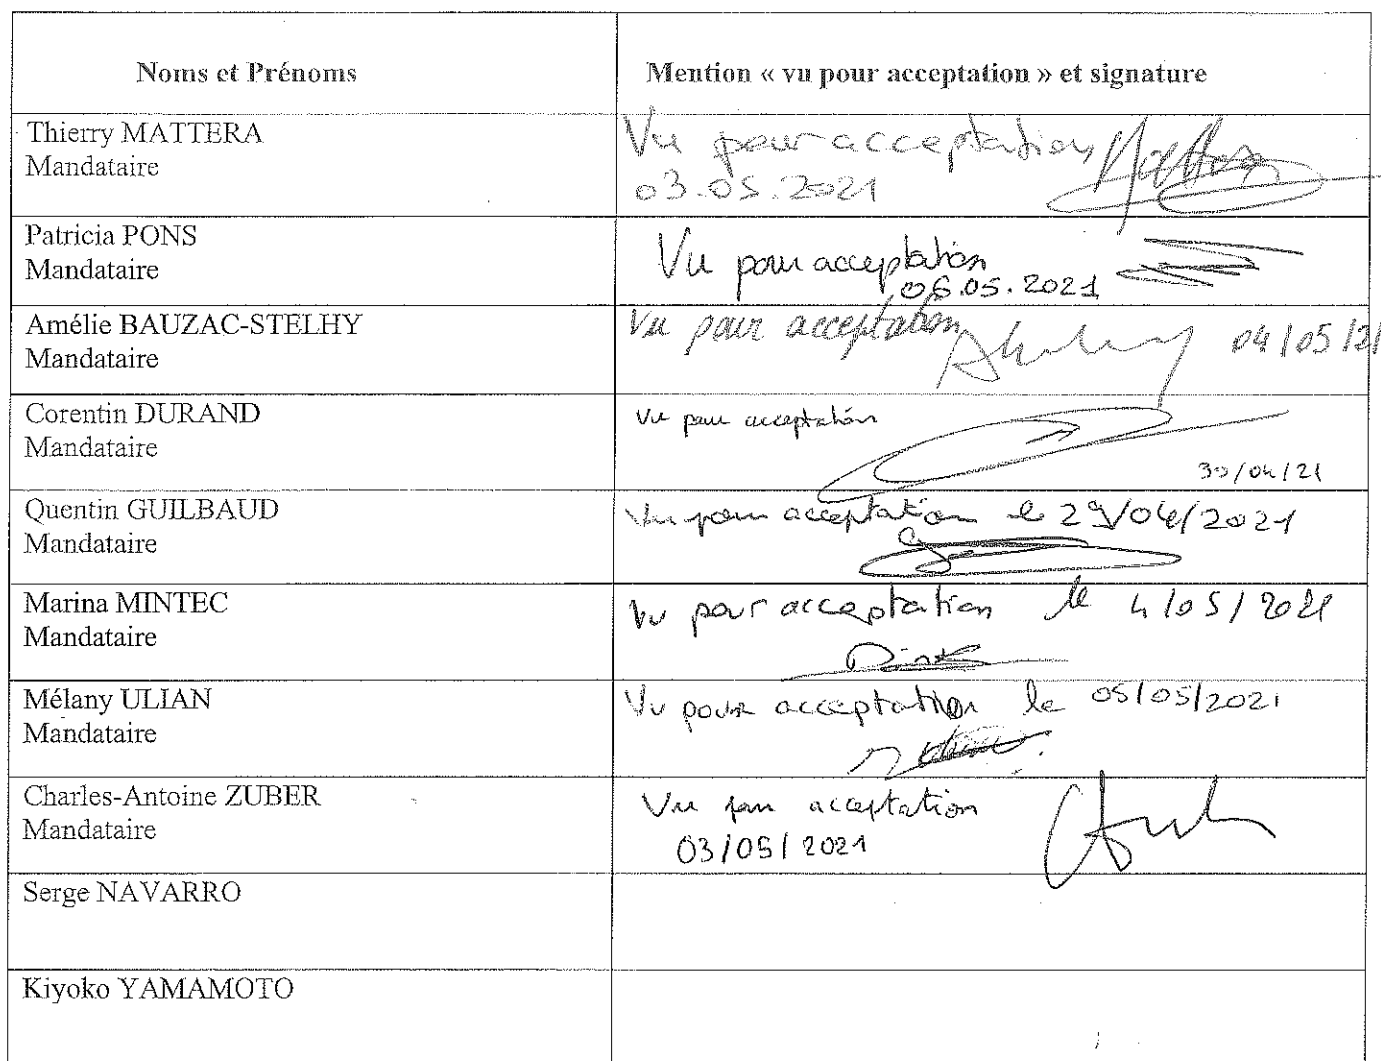 Noms et Prénoms
Mention « vu pour acceptation » et signature
Thierry MATTERA
Mandataire
Vu pour acceptation
03.05.2021
Patricia PONS
Mandataire
Vu pour acceptation
06.05.2021
Amélie BAUZAC-STELHY
Mandataire
Vu pour acceptation 04/05/21
Corentin DURAND
Mandataire
Vu pour acceptation
30/04/21
Quentin GUILBAUD
Mandataire
Vu pour acceptation le 29/04/2021
Marina MINTEC
Mandataire
Vu pour acceptation le 4/05/2021
Mélany ULIAN
Mandataire
Vu pour acceptation le 05/05/2021
Charles-Antoine ZUBER
Mandataire
Vu pour acceptation
03/05/2021
Serge NAVARRO
Kiyoko YAMAMOTO